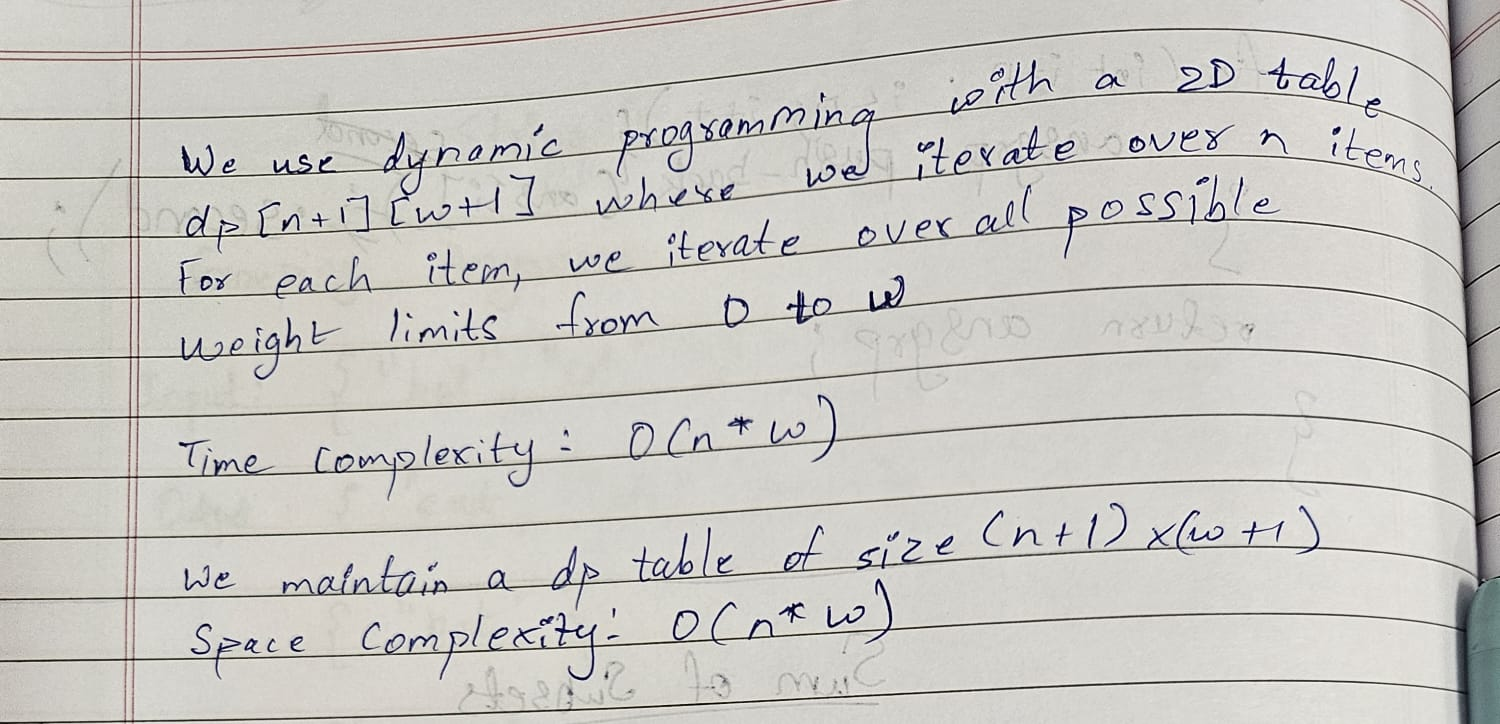 We use dynamic programming with a 2D table
dp [n+1] [w+1] where we iterate over n items.
For each item, we iterate over all possible
weight limits from 0 to w
Time complexity: O(n * w)
We maintain a dp table of size (n+1) x (w+1)
Space complexity: O(n * w)